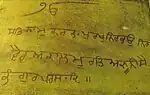 ੴ
ਸਤਿਨਾਮੁ ਕਰਤਾ ਪੁਰਖੁ ਨਿਰਭਉ ਨਿਰ
ਵੈਰੁ ਅਕਾਲ ਮੂਰਤਿ ਅਜੂਨੀ ਸੈ
ਭੰ ਗੁਰ ਪ੍ਰਸਾਦਿ ॥